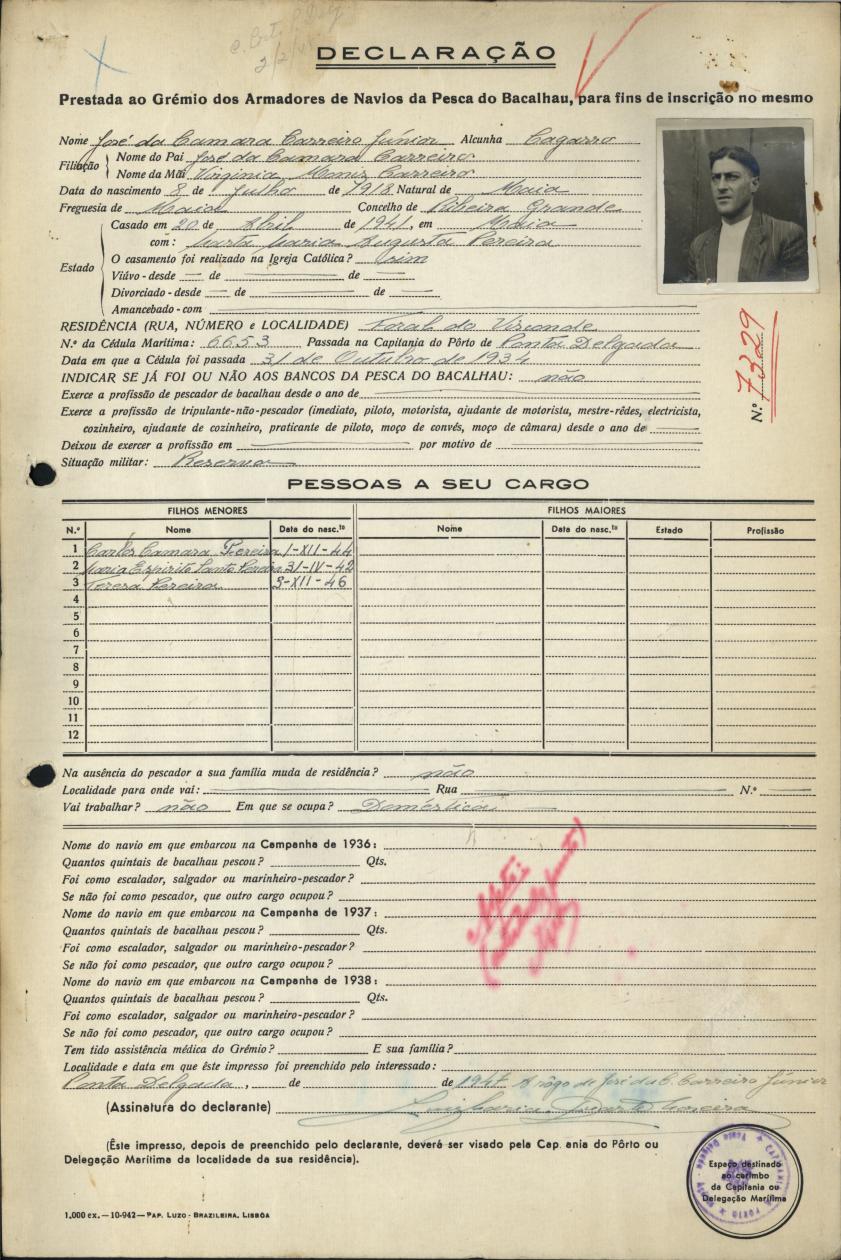 DECLARAÇÃO
Prestada ao Grémio dos Armadores de Navios da Pesca do Bacalhau, para fins de inscrição no mesmo
Nome José da Camara Carreiro Júnior Alcunha Cagarro
Filiação
Nome do Pai José da Camara Carreiro
Nome da Mãi Virginia Moniz Carreiro
Data do nascimento 8 de Julho de 1918 Natural de Maia
Freguesia de Maia Concelho de Ribeira Grande
Estado
Casado em 20 de Abril de 1941, em Maia
com: Marta Maria Augusta Pereira
O casamento foi realizado na Igreja Católica? sim
Viúvo - desde — de — de —
Divorciado - desde — de — de —
Amancebado - com —
RESIDÊNCIA (RUA, NÚMERO e LOCALIDADE) Foral do Visconde
N.º da Cédula Marítima: 6653 Passada na Capitania do Pôrto de Ponta Delgada
Data em que a Cédula foi passada 31 de Outubro de 1934
INDICAR SE JÁ FOI OU NÃO AOS BANCOS DA PESCA DO BACALHAU: não
Exerce a profissão de pescador de bacalhau desde o ano de —
Exerce a profissão de tripulante-não-pescador (imediato, piloto, motorista, ajudante de motorista, mestre-rêdes, electricista,
cozinheiro, ajudante de cozinheiro, praticante de piloto, moço de convés, moço de câmara) desde o ano de —
Deixou de exercer a profissão em — por motivo de —
Situação militar: Reserva
N.º 7329
PESSOAS A SEU CARGO
FILHOS MENORES FILHOS MAIORES
N.º Nome Data do nasc.to Nome Data do nasc.to Estado Profissão
1 Carlos Camara Pereira 1-XII-44
2 Maria Espirito Santo Pereira 31-IV-42
3 Teresa Pereira 3-XII-46
4
5
6
7
8
9
10
11
12
Na ausência do pescador a sua família muda de residência? não
Localidade para onde vai: — Rua — N.º —
Vai trabalhar? não Em que se ocupa? Doméstica —
Nome do navio em que embarcou na Campanha de 1936:
Quantos quintais de bacalhau pescou? Qts.
Foi como escalador, salgador ou marinheiro-pescador?
Se não foi como pescador, que outro cargo ocupou?
Nome do navio em que embarcou na Campanha de 1937:
Quantos quintais de bacalhau pescou? Qts.
Foi como escalador, salgador ou marinheiro-pescador?
Se não foi como pescador, que outro cargo ocupou?
Nome do navio em que embarcou na Campanha de 1938:
Quantos quintais de bacalhau pescou? Qts.
Foi como escalador, salgador ou marinheiro-pescador?
Se não foi como pescador, que outro cargo ocupou?
Tem tido assistência médica do Grémio? E sua família?
Localidade e data em que êste impresso foi preenchido pelo interessado:
Ponta Delgada, de de 1947 A rôgo de José da C. Carreiro Júnior
(Assinatura do declarante) Duarte
(Êste impresso, depois de preenchido pelo declarante, deverá ser visado pela Cap. ania do Pôrto ou
Delegação Marítima da localidade da sua residência).
Espaço destinado
ao carimbo
da Capitania ou
Delegação Marítima
1,000 ex. — 10-942 — PAP. LUZO-BRAZILEIRA, LISBÔA